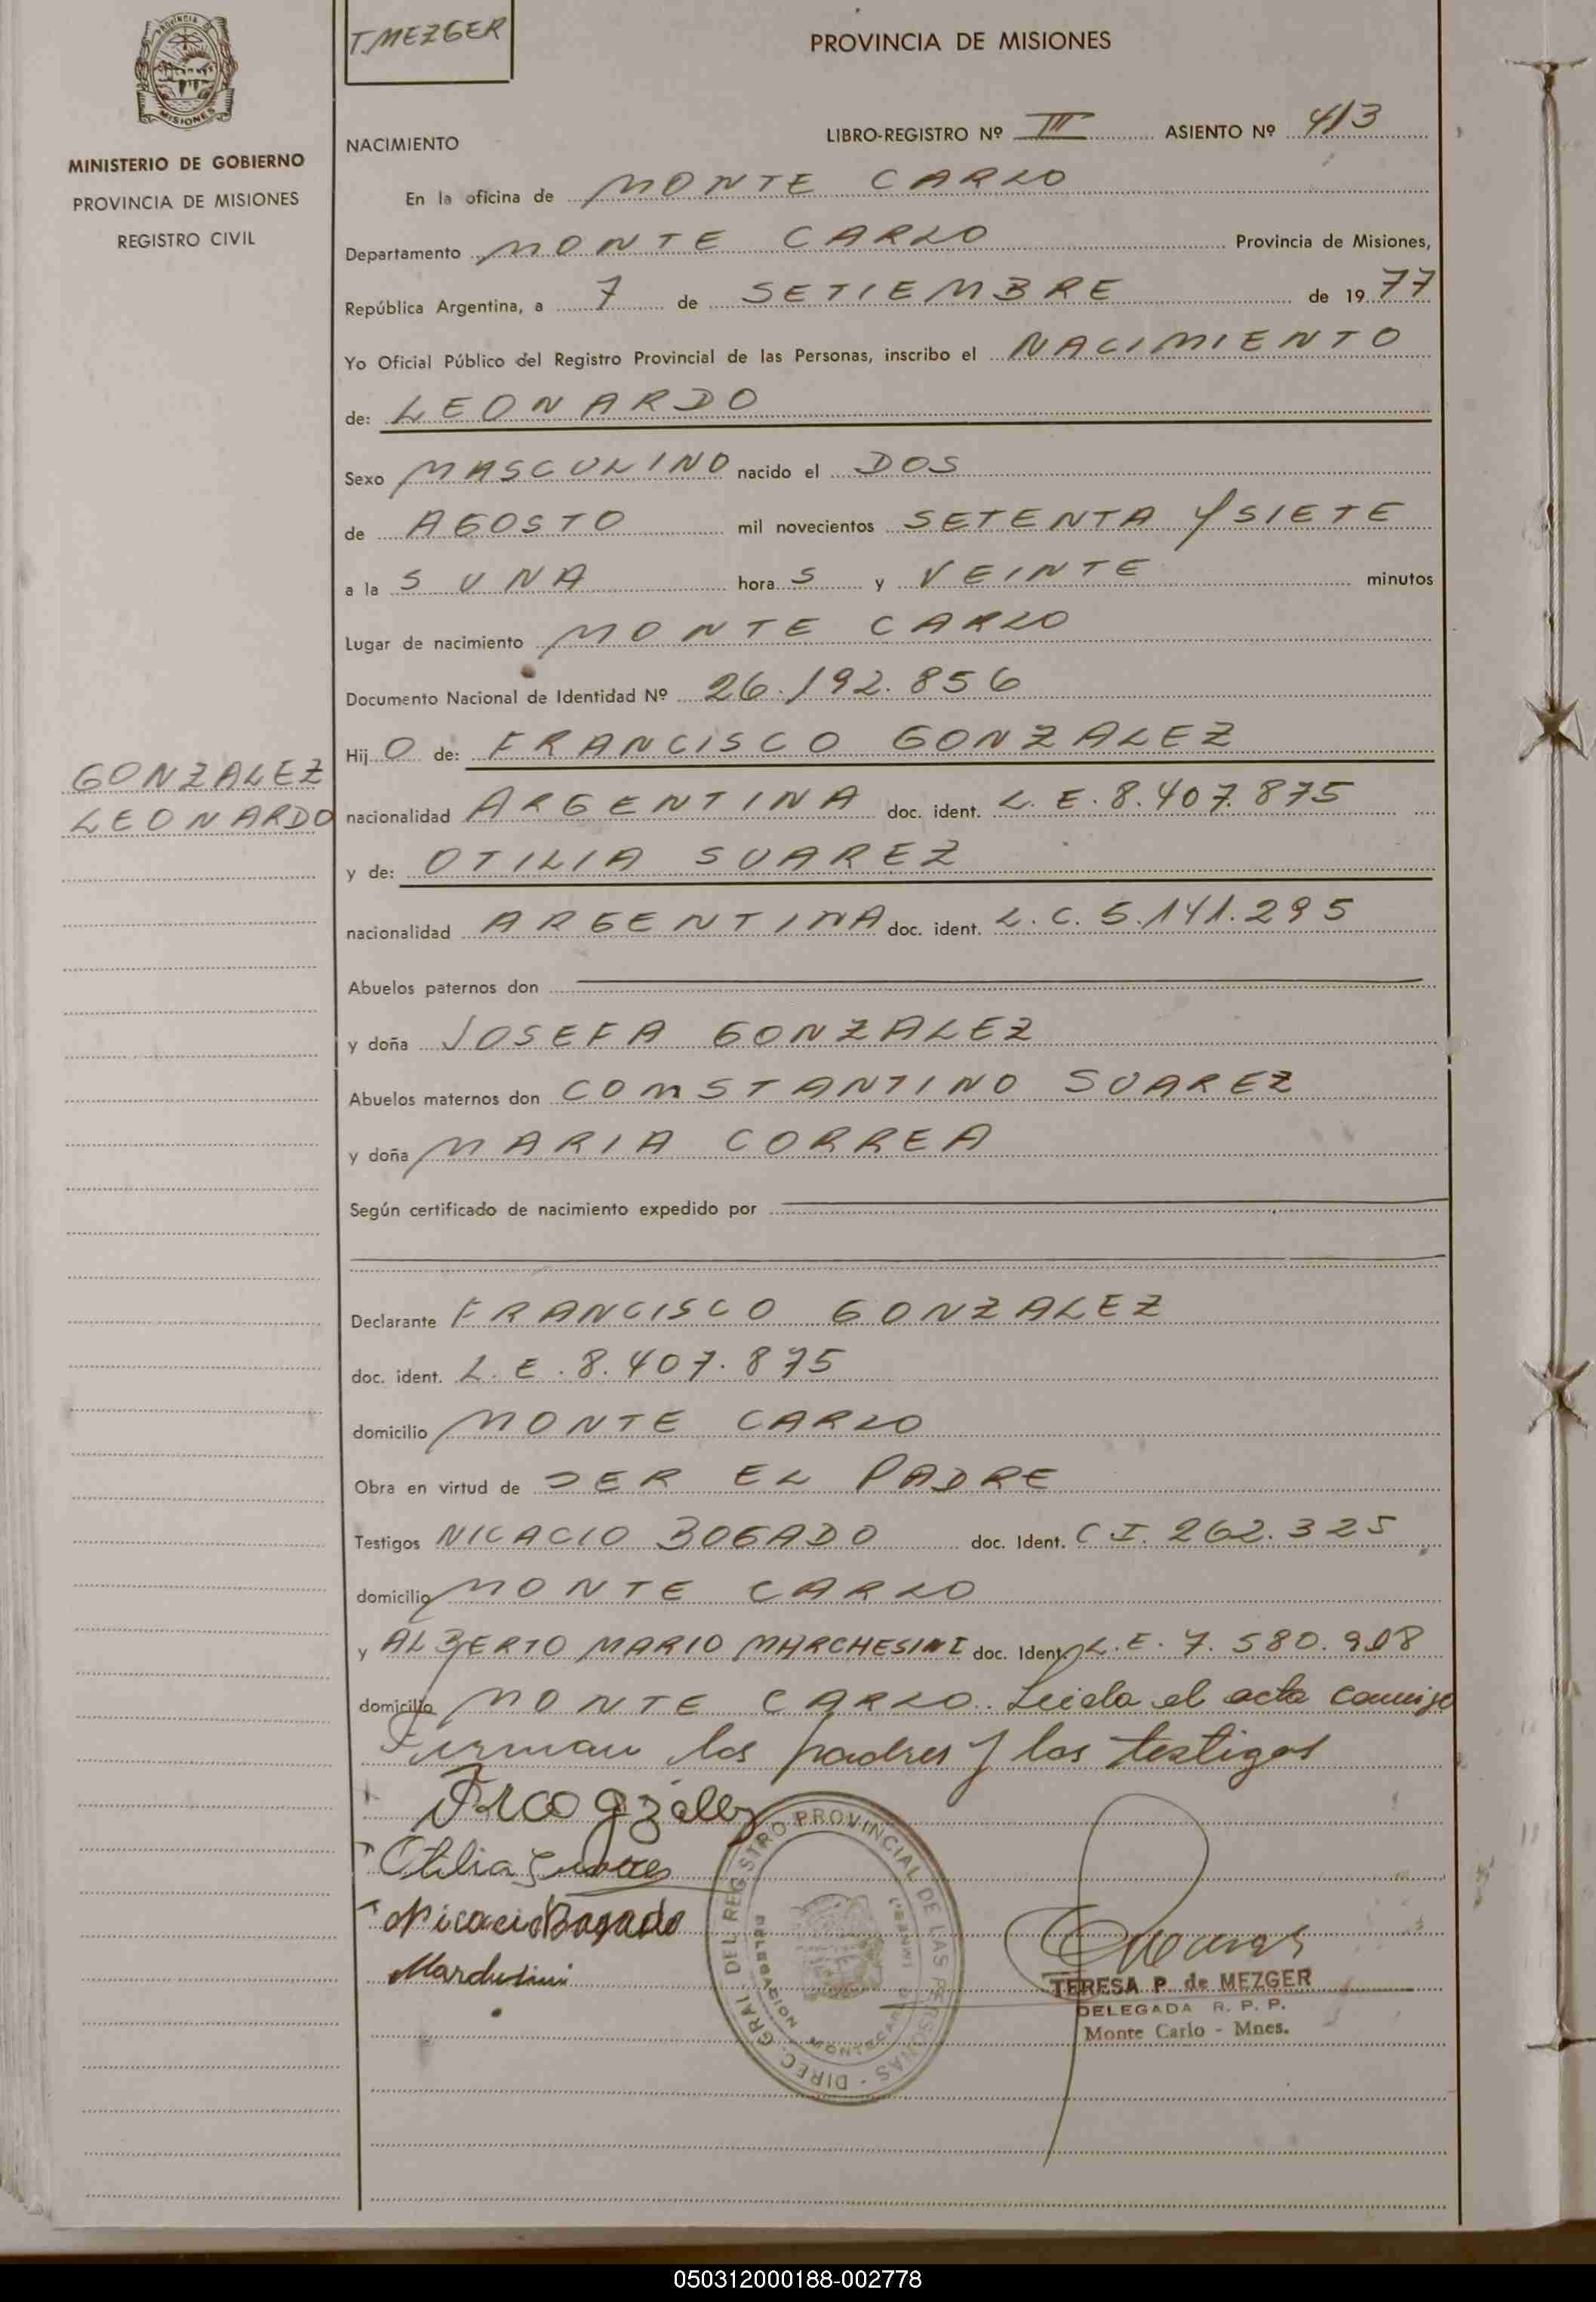 T. MEZGER
PROVINCIA DE MISIONES
MISIONES
MINISTERIO DE GOBIERNO
PROVINCIA DE MISIONES
REGISTRO CIVIL
NACIMIENTO
LIBRO-REGISTRO Nº III ASIENTO Nº 413
En la oficina de MONTE CARLO
Departamento MONTE CARLO Provincia de Misiones,
República Argentina, a 7 de SETIEMBRE de 19 77
Yo Oficial Público del Registro Provincial de las Personas, inscribo el NACIMIENTO
de: LEONARDO
Sexo MASCULINO nacido el DOS
de AGOSTO mil novecientos SETENTA Y SIETE
a la S UNA hora S y VEINTE minutos
Lugar de nacimiento MONTE CARLO
Documento Nacional de Identidad Nº 26.192.856
Hij O de: FRANCISCO GONZALEZ
GONZALEZ
LEONARDO
nacionalidad ARGENTINA doc. ident. L.E. 8.407.875
y de: OTILIA SUAREZ
nacionalidad ARGENTINA doc. ident. L.C. 5.141.295
Abuelos paternos don
y doña JOSEFA GONZALEZ
Abuelos maternos don COMSTANTINO SUAREZ
y doña MARIA CORREA
Según certificado de nacimiento expedido por
Declarante FRANCISCO GONZALEZ
doc. ident. L.E. 8.407.875
domicilio MONTE CARLO
Obra en virtud de SER EL PADRE
Testigos NICACIO BOGADO doc. Ident. C I. 262.325
domicilio MONTE CARLO
y ALBERTO MARIO MARCHESINI doc. Ident. L.E. 7.580.908
domicilio MONTE CARLO. Leida el acta conmigo
Firman los padres y los testigos
Frco gzalez
Otilia Suarez
Nicacio Bogado
Marchesini
DIREC. GRAL. DEL REGISTRO PROVINCIAL DE LAS PERSONAS
DELEGACION MONTECARLO
TERESA P. de MEZGER
DELEGADA R. P. P.
Monte Carlo - Mnes.
050312000188-002778